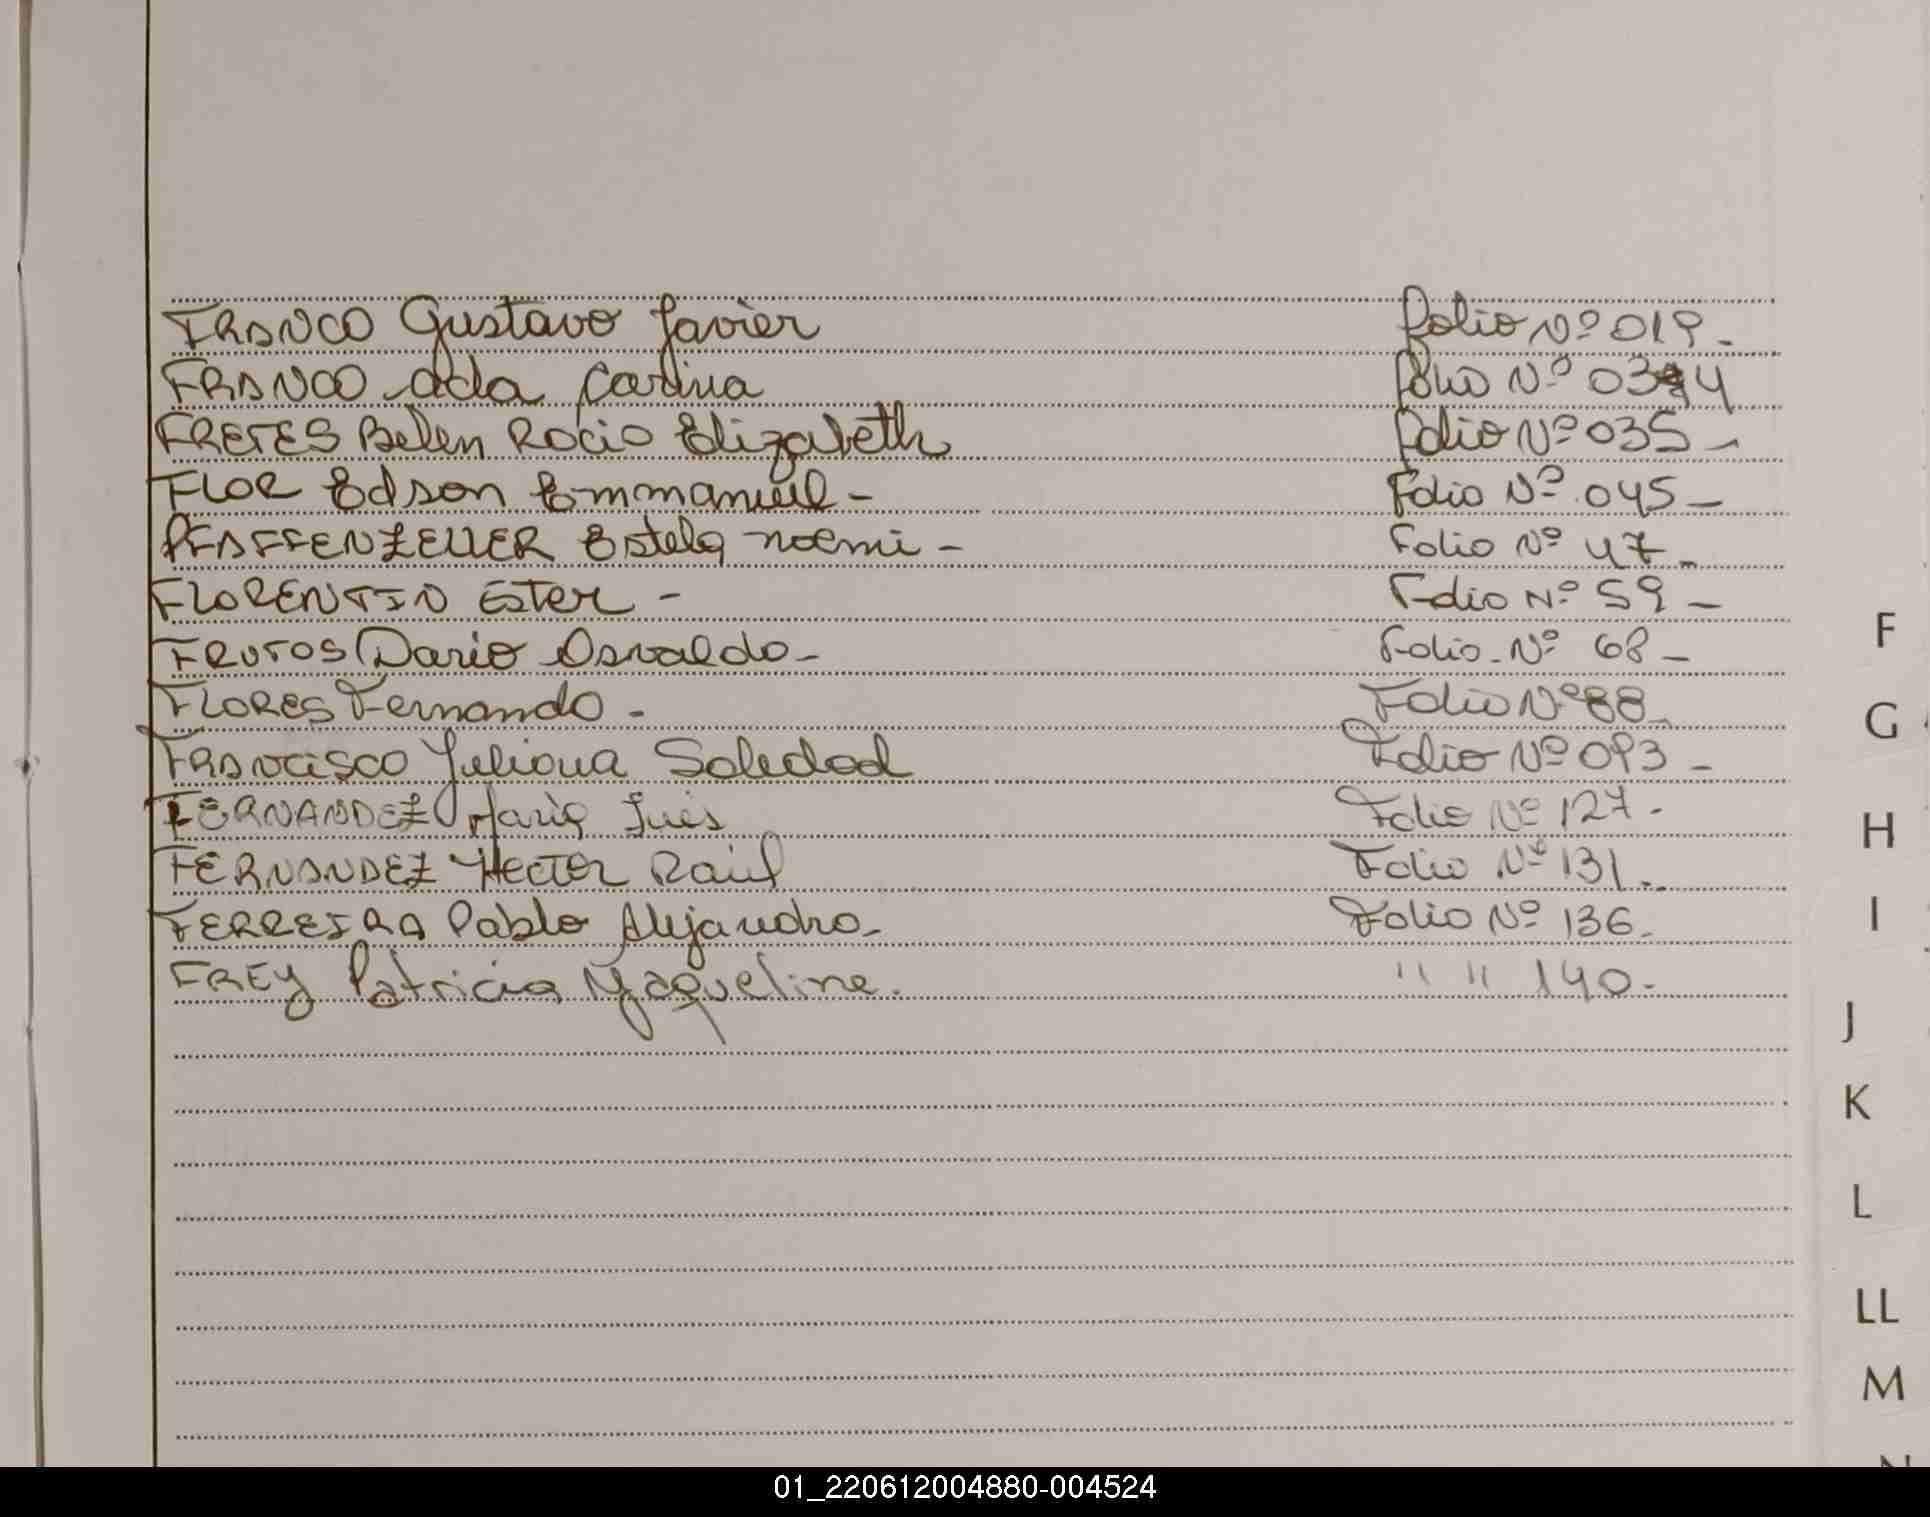 FRANCO Gustavo Javier folio Nº 019.
FRANCO Ada Carina folio Nº 034
FRETES Belen Rocio Elizabeth folio Nº 035 -
FLOR Edson Emmanuel - Folio Nº 045 -
PFAFFENZELLER Estela Noemi - Folio Nº 47 -
FLORENTIN Ester - Folio Nº 59 -
FRUTOS Dario Osvaldo - Folio Nº 68 -
FLORES Fernando - Folio Nº 88
FRANCISCO Juliana Soledad Folio Nº 093 -
FERNANDEZ Maria Inés Folio Nº 127 -
FERNANDEZ Hector Raúl Folio Nº 131.
FERREIRA Pablo Alejandro - Folio Nº 136.
FREY Patricia Yaqueline. " " 140 -
F
G
H
I
J
K
L
LL
M
N
01_220612004880-004524